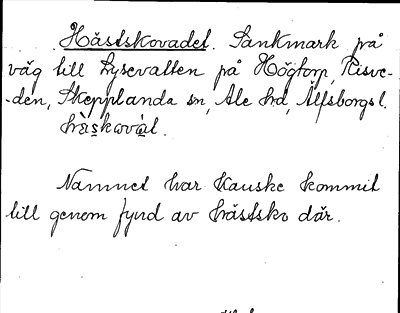 Hästskovadet. Sankmark på
väg till Lysevatten på Högtorp, Risve-
-den, Skepplanda sn, Ale hd, Älfsborgs l.
hä̀sková̀l.
Namnet har kanske kommit
till genom fynd av hästsko där.